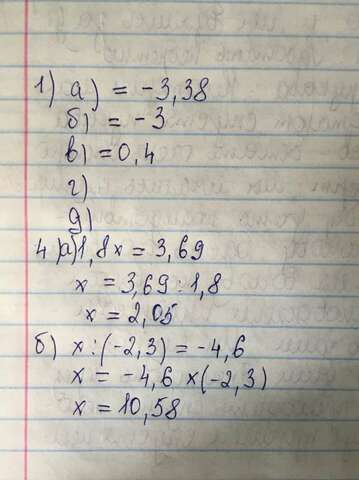 1) а) = -3,38
б) = -3
в) = 0,4
г)
д)
4) а) 1,8x = 3,69
x = 3,69 : 1,8
x = 2,05
б) x : (-2,3) = -4,6
x = -4,6 x (-2,3)
x = 10,58